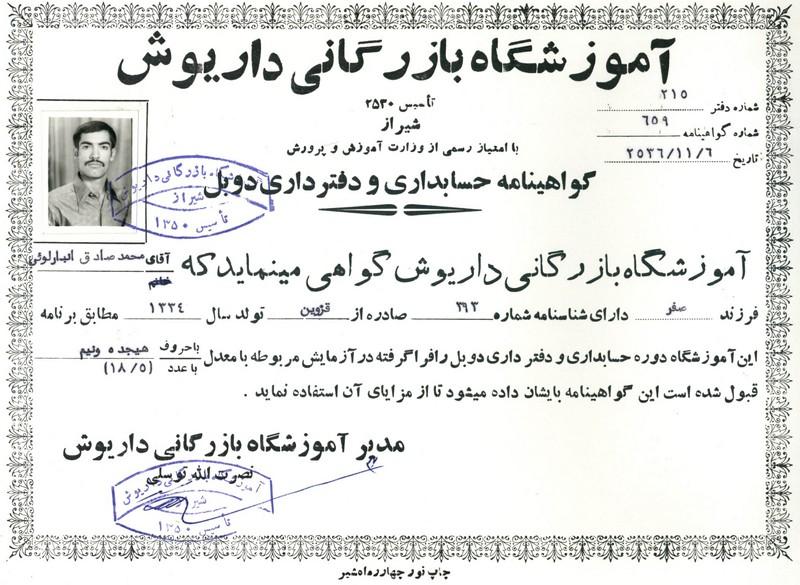 آموزشگاه بازرگانی داریوش
تأسیس ۲۵۳۰
شیراز
با امتیاز رسمی از وزارت آموزش و پرورش
شماره دفتر ۲۱۵
شماره گواهینامه ۶۵۹
تاریخ ۲۵۳۶/۱۱/۶
گواهینامه حسابداری و دفترداری دوبل
بازرگانی داریوش
شیراز
تأسیس ۱۳۵۰
آموزشگاه بازرگانی داریوش گواهی مینماید که آقای محمد صادق انبارلوئی
خانم
فرزند صفر دارای شناسنامه شماره ۲۹۳ صادره از قزوین تولد سال ۱۳۳۴ مطابق برنامه
این آموزشگاه دوره حسابداری و دفتر داری دوبل را فرا گرفته در آزمایش مربوطه با معدل باحروف هیجده ونیم
با عدد (۱۸/۵)
قبول شده است این گواهینامه بایشان داده میشود تا از مزایای آن استفاده نماید .
مدیر آموزشگاه بازرگانی داریوش
نصرت الله توسلی
داریوش
تأسیس ۱۳۵۰
چاپ نور چهارراه مشیر